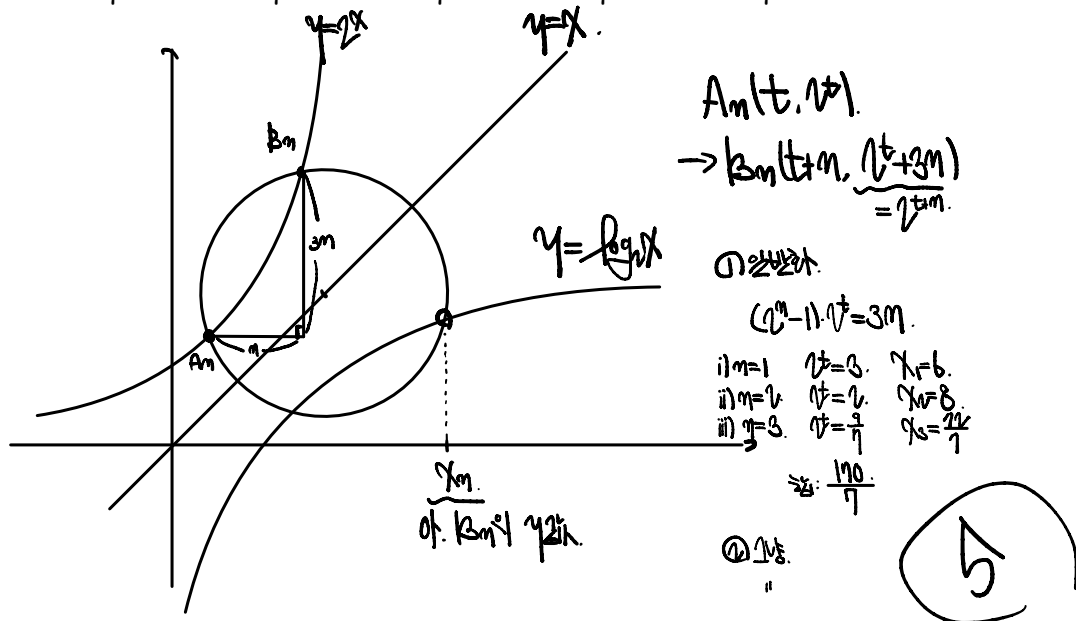 y=2^x
y=x.
Bn
3n
n
An
y=log₂x
xn
아. Bn의 y값과.
An(t, 2^t).
→ Bn(t+n, 2^t+3n)
=2^{t+n}.
① 일반화.
(2^n-1)·2^t=3n.
i) n=1 2^t=3. x₁=6.
ii) n=2 2^t=2. x₂=8.
iii) n=3. 2^t=9/7 x₃=72/7
170/7
② 그냥.
"
5